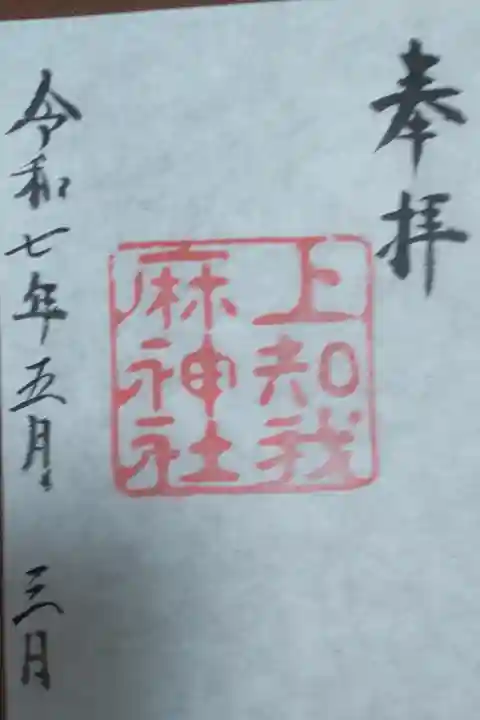 奉拝
上知我
麻神社
令和七年五月三月